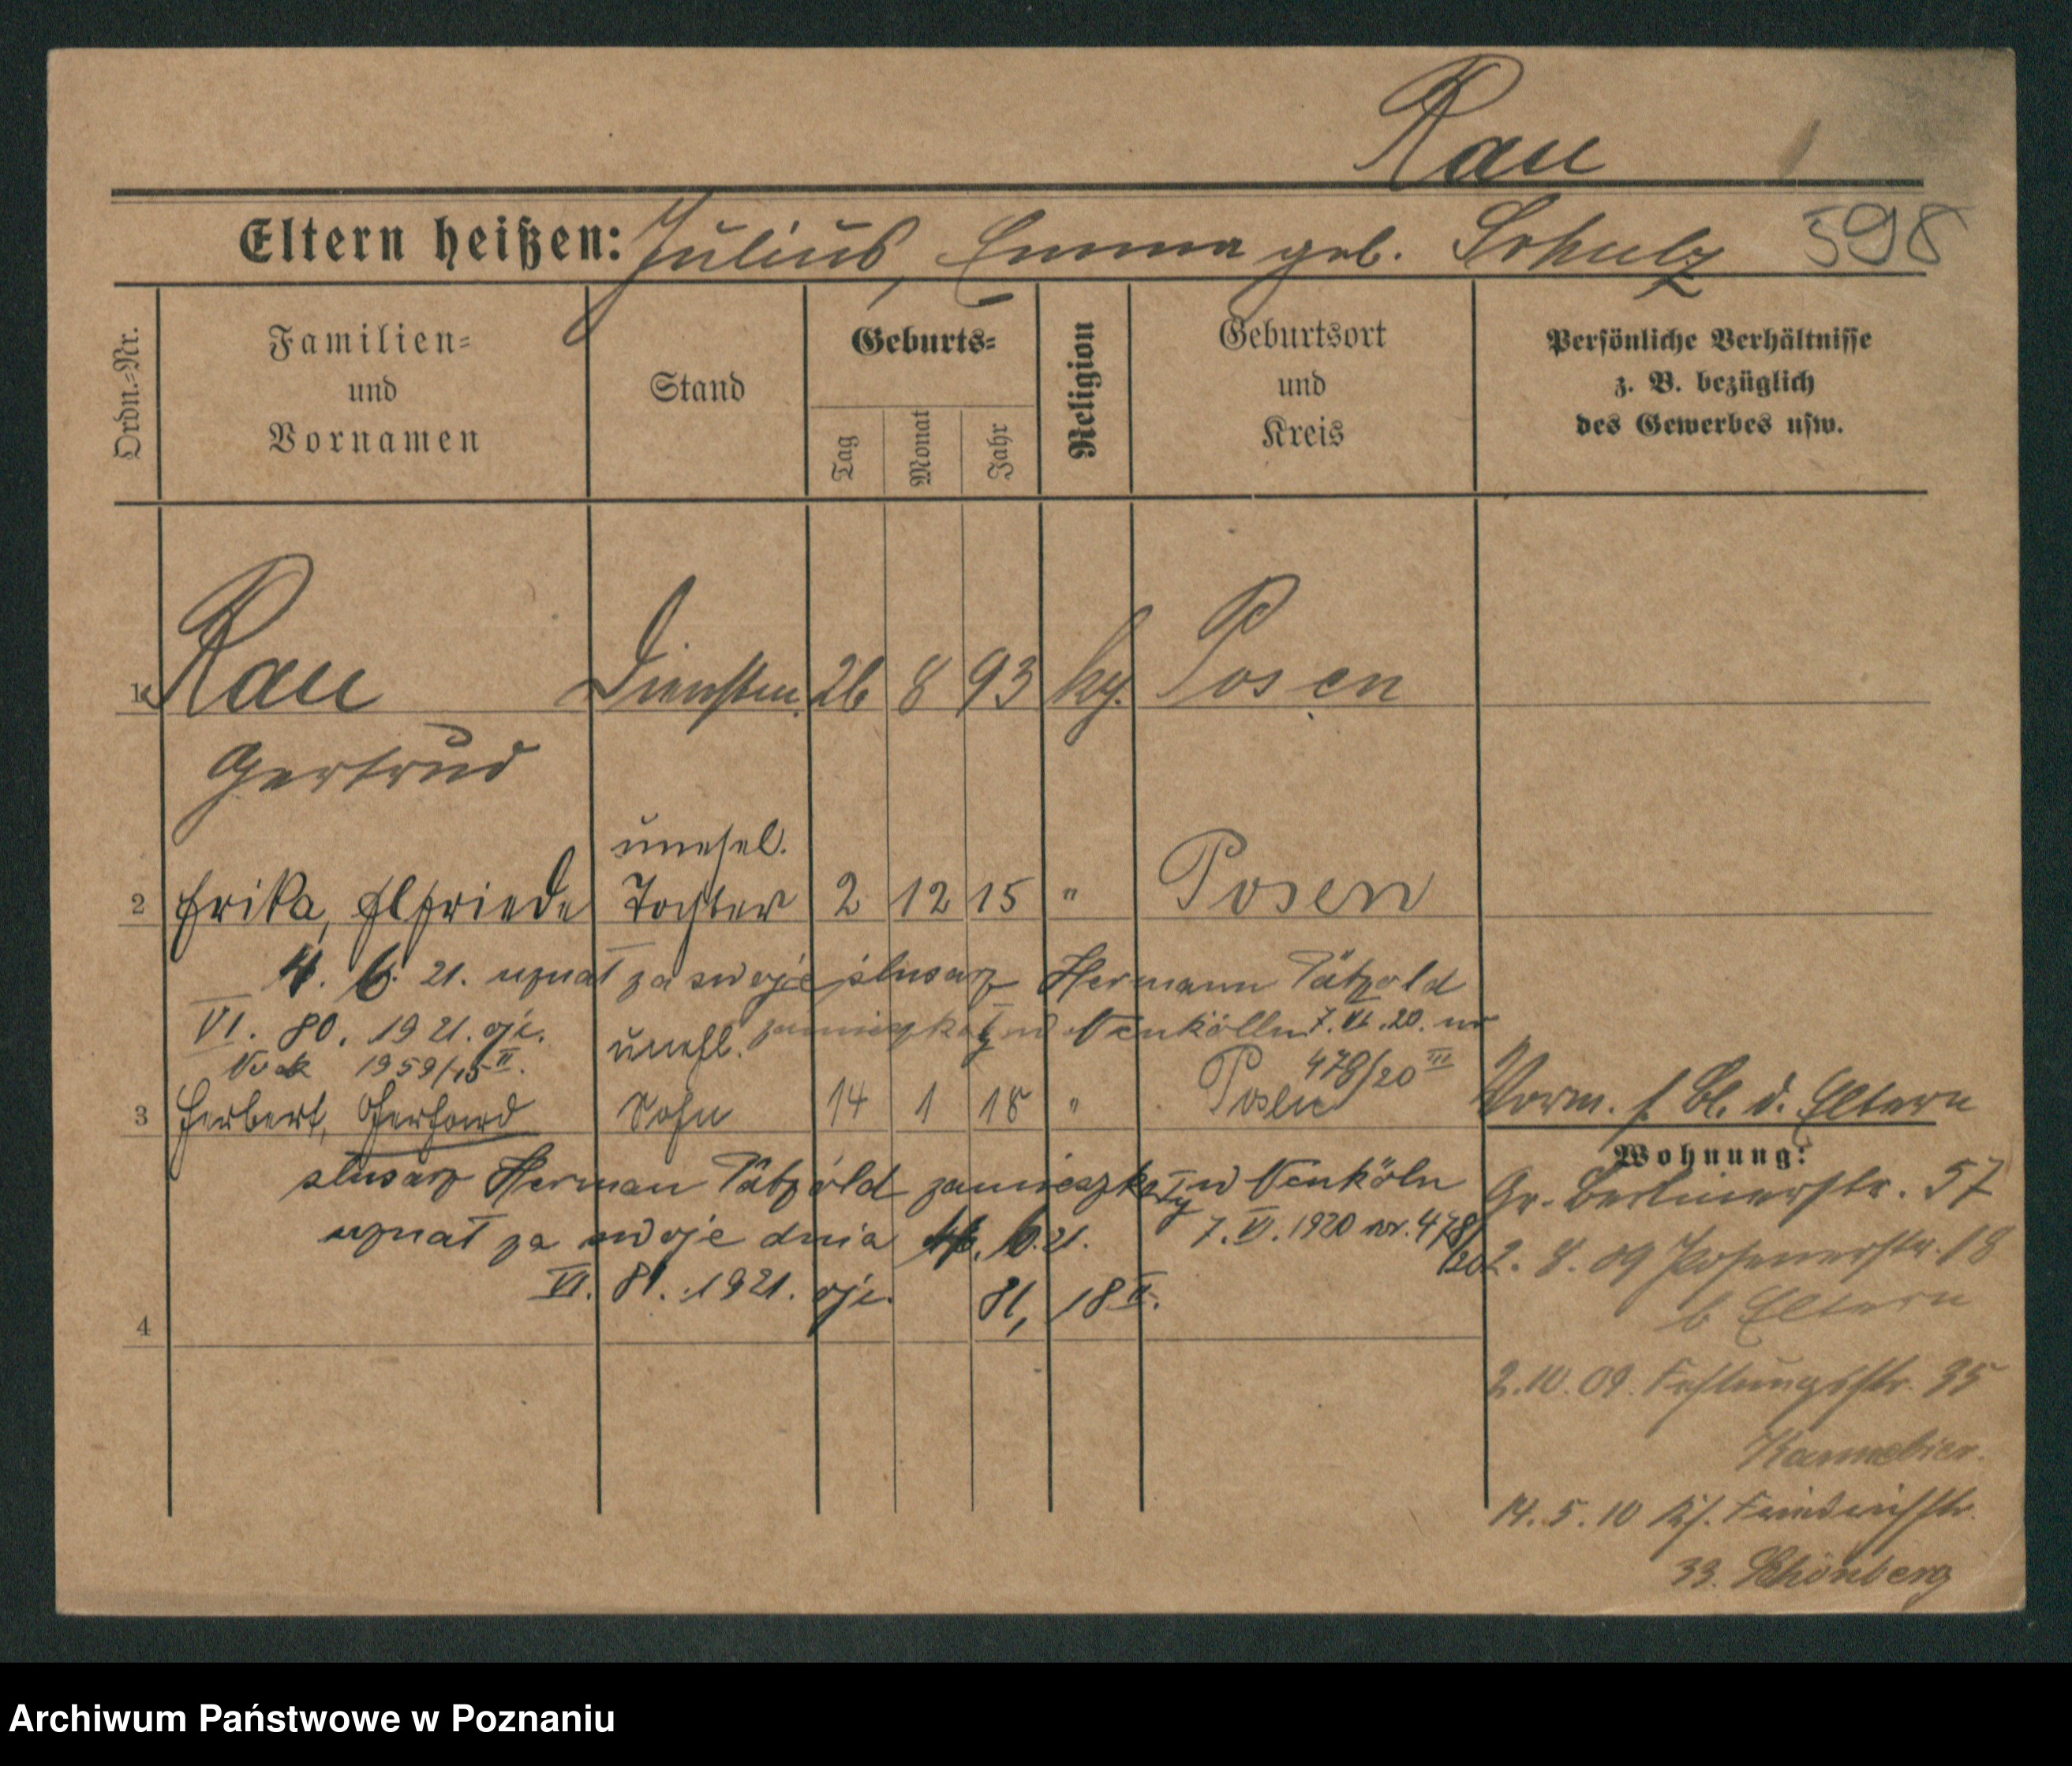 Rau
Eltern heißen: Julius, Emma geb. Schulz 598
Ordn.-Nr.
Familien-
und
Vornamen
Stand
Geburts-
Tag
Monat
Jahr
Religion
Geburtsort
und
Kreis
Persönliche Verhältnisse
z. B. bezüglich
des Gewerbes usw.
1 Rau 26 8 93 Posen
Gertrud
unehel.
2 Erika, Elfriede Tochter 2 12 15 " Posen
4. 6. 21. uznał za swoje ślusarz Hermann Pätzold
VI. 80. 1921. oje. zamieszkały w Neukölln 7. VI. 20. nr
1959/15 II. unehl. 478/20 III
3 Herbert, Gerhard Sohn 14 1 18 " Posen
slusarz Herman Pätzold zamieszkały w Neuköln
uznał za swoje dnia 4. 6. 21. 7. VI. 1920 nr. 478/20
VI. 81. 1921. oje. 81, 18 II.
4
Vorm. f. Bl. d. Eltern
Wohnung:
Gr. Berlinerstr. 57
2. 8. 09 Posenerstr. 18
b Eltern
2. 10. 09. Festungsstr. 35
14. 5. 10 Friedrichstr.
33. Schönberg
Archiwum Państwowe w Poznaniu